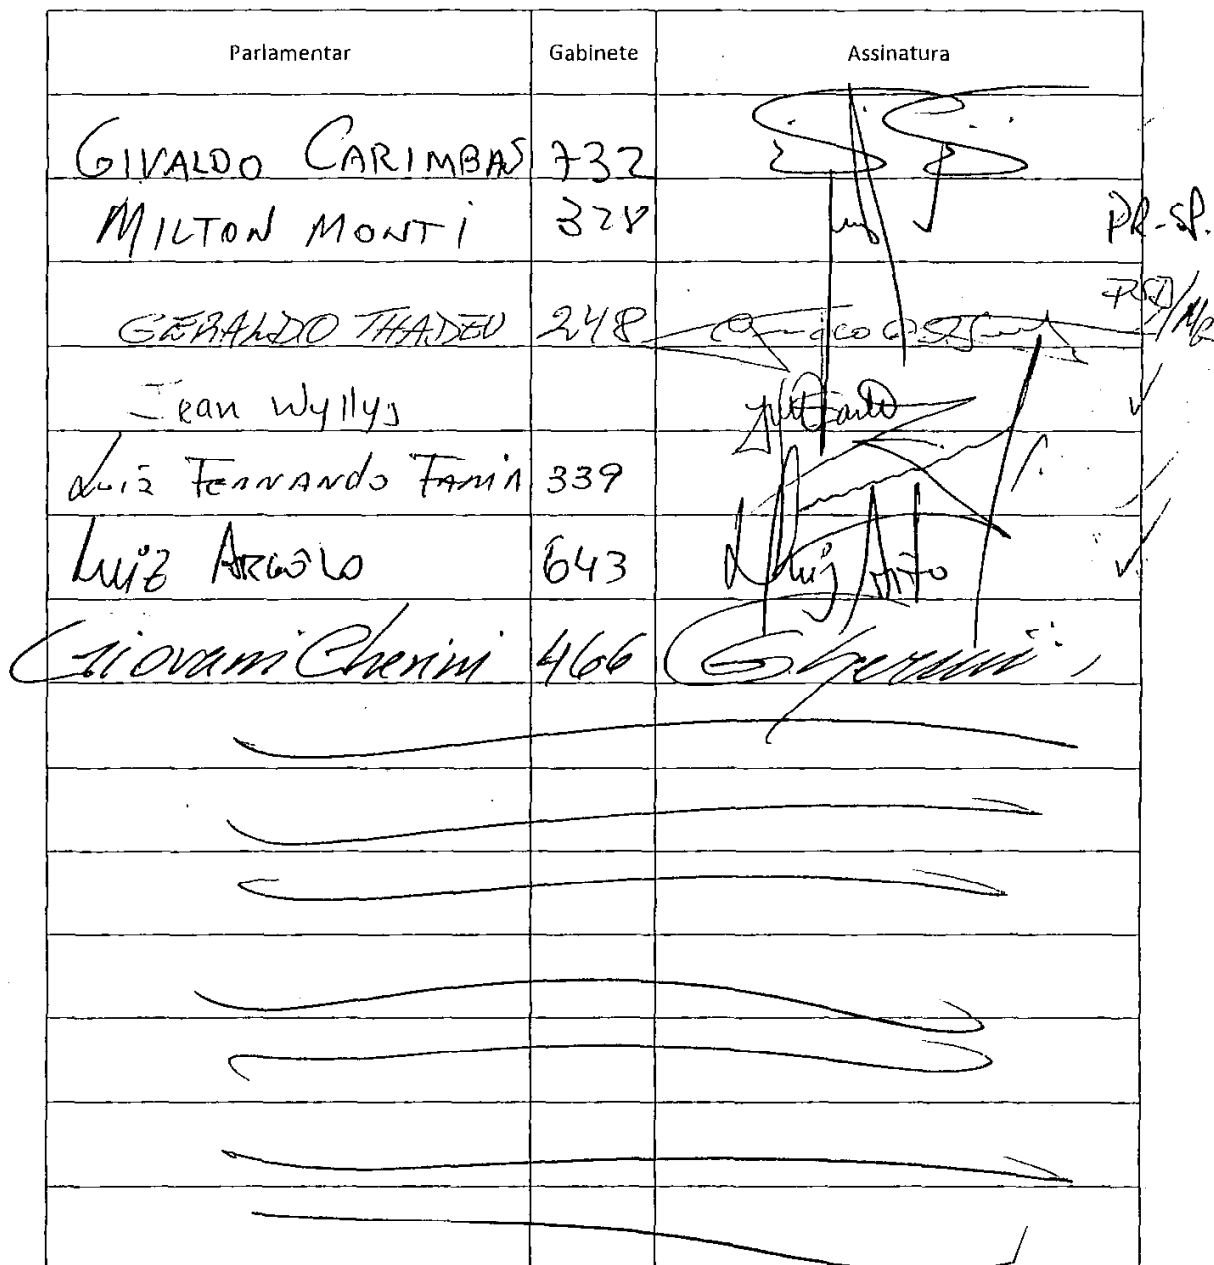 Parlamentar Gabinete Assinatura
GIVALDO CARIMBAS 732
MILTON MONTI 328 PR-SP.
GERALDO THADEU 248 PSD/MG
Jean Wyllys
Luiz Fernando Faria 339
Luiz Argôlo 643
Giovani Cherini 466 GCherini